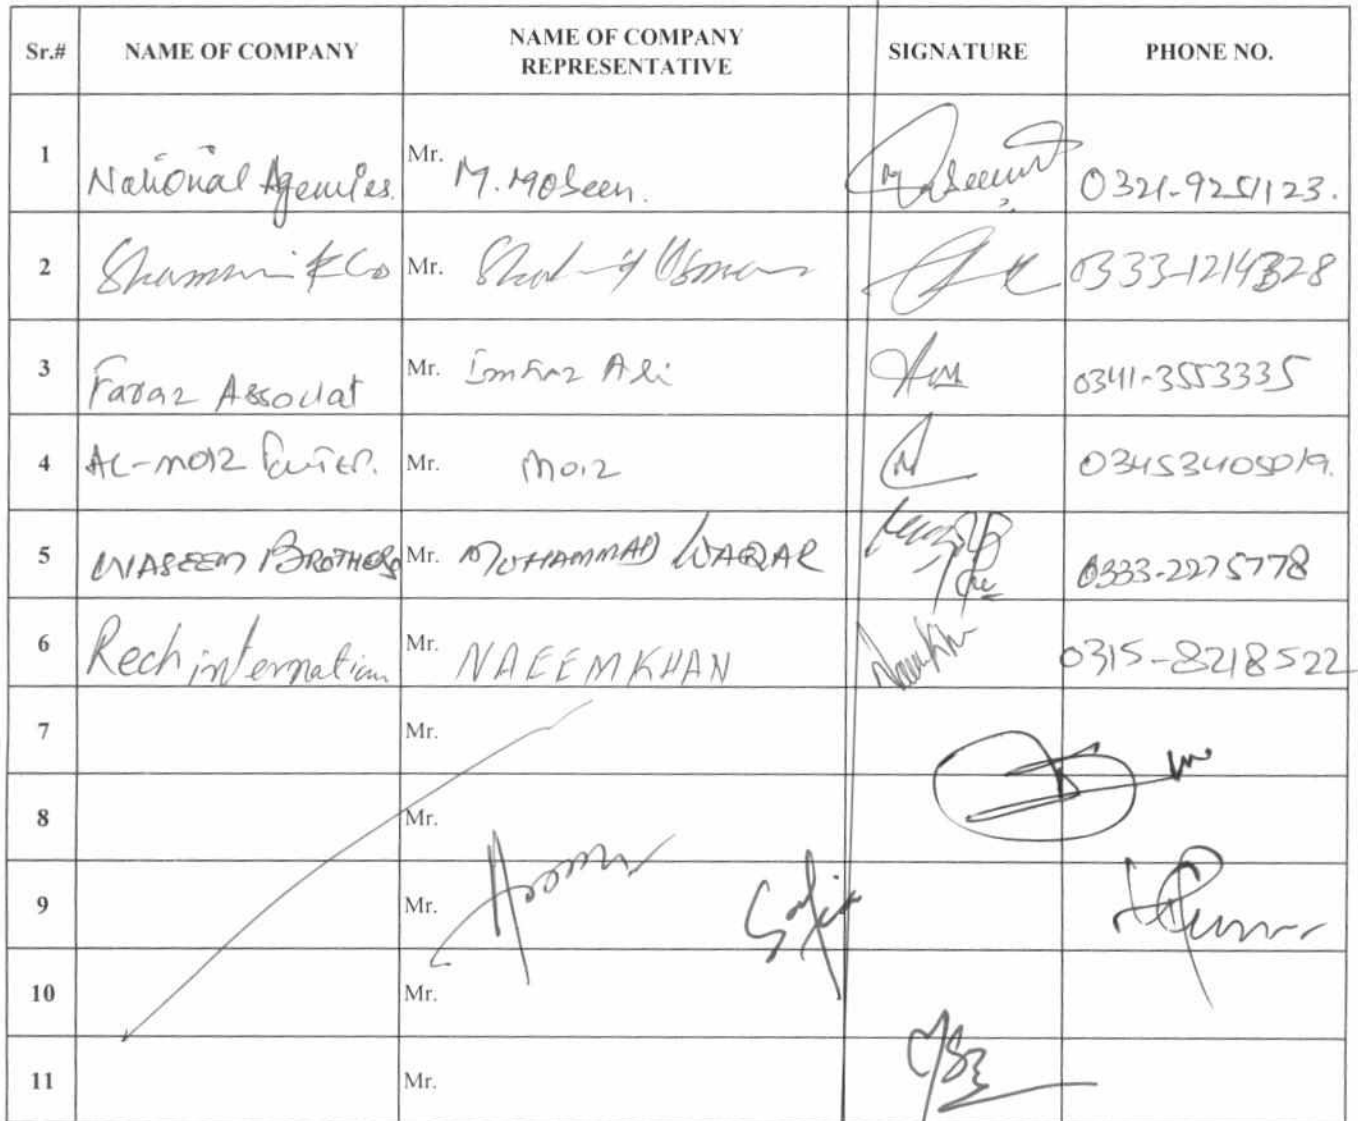 Sr.# NAME OF COMPANY NAME OF COMPANY REPRESENTATIVE SIGNATURE PHONE NO.
1 National Agencies. Mr. M. Mobeen. 0321-9251123.
2 & Co Mr. Usman 0333-1214328
3 Faraz Associat Mr. Imtiaz Ali 0341-3553335
4 AL-MOIZ Mr. Moiz 03453405019.
5 WASEEM BROTHERS Mr. MUHAMMAD WAQAR 0333-2275778
6 Rech internation Mr. NAEEM KHAN Naeem Khan 0315-8218522
7 Mr.
8 Mr.
9 Mr.
10 Mr.
11 Mr.